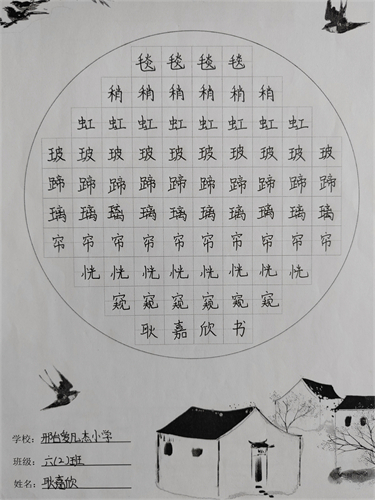 毯毯毯毯
稍稍稍稍稍稍
虹虹虹虹虹虹虹虹
玻玻玻玻玻玻玻玻玻玻
蹄蹄蹄蹄蹄蹄蹄蹄蹄蹄
璃璃璃璃璃璃璃璃璃璃
帘帘帘帘帘帘帘帘帘帘
恍恍恍恍恍恍恍恍
窥窥窥窥窥窥
耿嘉欣书
学校：邢台发凡杰小学
班级：六(2)班
姓名：耿嘉欣